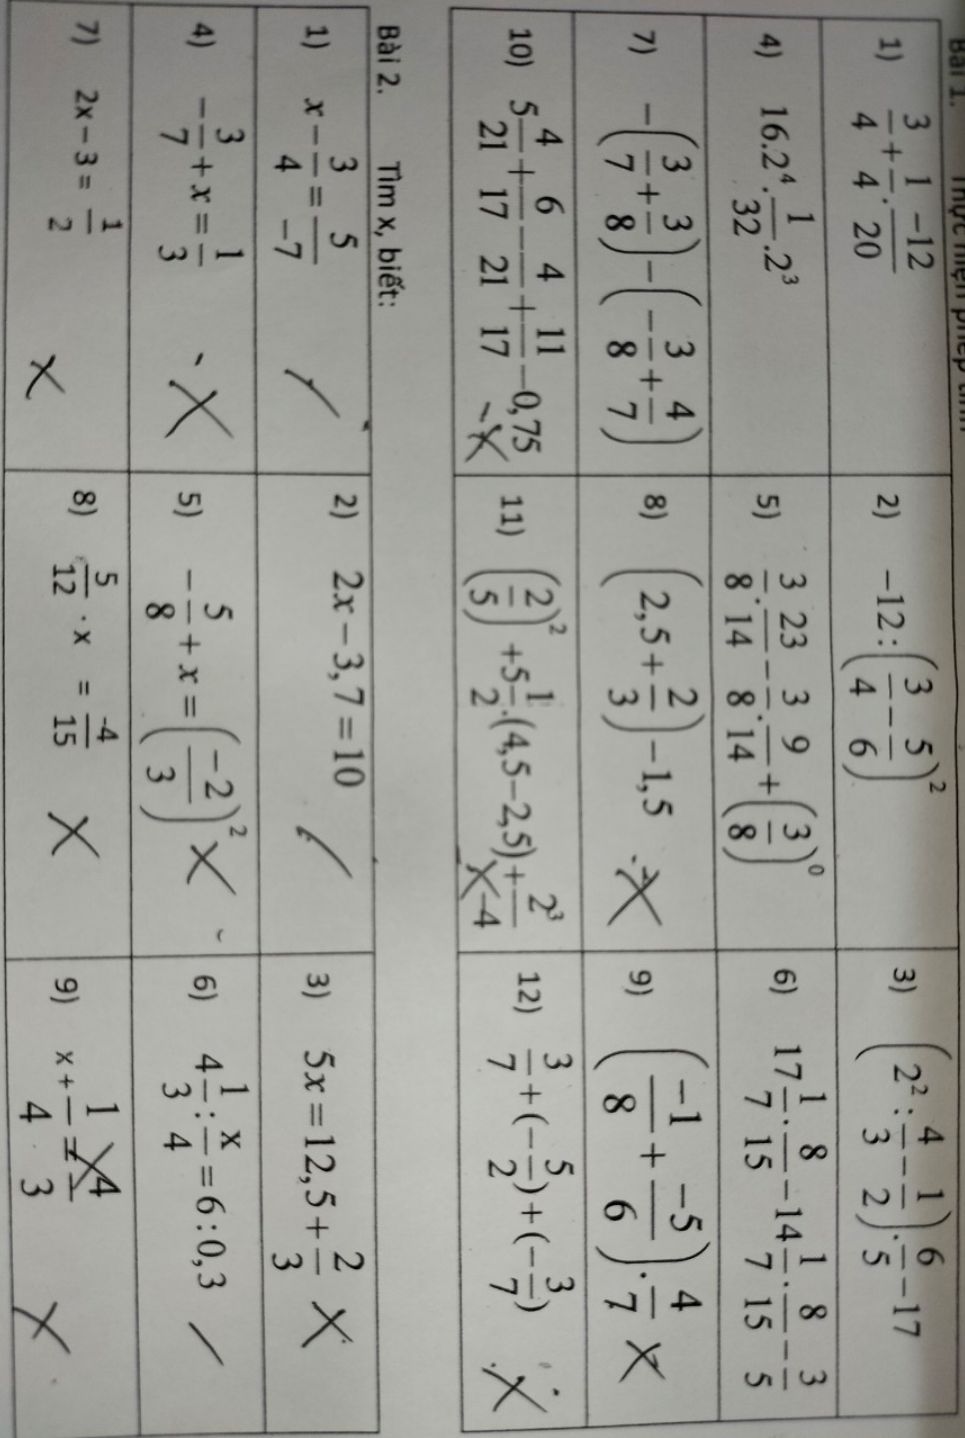 Bài 1. Thực hiện phép tính
1) 3/4 + 1/4 . -12/20
2) -12 : (3/4 - 5/6)²
3) (2² : 4/3 - 1/2) . 6/5 - 17
4) 16.2⁴ . 1/32 . 2³
5) 3/8 . 23/14 - 3/8 . 9/14 + (3/8)⁰
6) 17 1/7 . 8/15 - 14 1/7 . 8/15 - 3/5
7) -(3/7 + 3/8) - (-3/8 + 4/7)
8) (2,5 + 2/3) - 1,5
9) (-1/8 + -5/6) . 4/7
10) 5 4/21 + 6/17 - 4/21 + 11/17 - 0,75
11) (2/5)² + 5 1/2 . (4,5 - 2,5) + 2³/-4
12) 3/7 + (-5/2) + (-3/7)
Bài 2. Tìm x, biết:
1) x - 3/4 = 5/-7
2) 2x - 3,7 = 10
3) 5x = 12,5 + 2/3
4) -3/7 + x = 1/3
5) -5/8 + x = (-2/3)²
6) 4 1/3 : x/4 = 6 : 0,3
7) 2x - 3 = 1/2
8) 5/12 . x = -4/15
9) x + 1/4 = 4/3